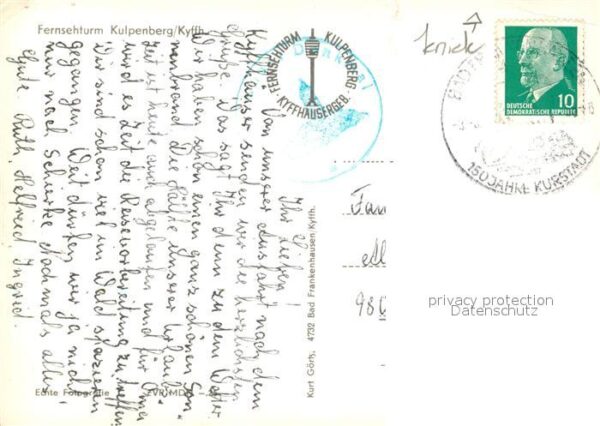 Fernsehturm Kulpenberg/Kyffh.
FERNSEHTURM KULPENBERG
KYFFHÄUSERGEB.
knick
DEUTSCHE
DEMOKRATISCHE REPUBLIK
10
150 JAHRE KURSTADT
Ihr Lieben!
Von unserer Ausfahrt nach dem
Kyffhäuser senden wir die herzlichsten
Grüße. Was sagt Ihr denn zu dem Wetter
Wir haben schon einen ganz schönen Son-
nenbrand. Die Hälfte unserer Urlaubs-
zeit ist heute auch abgelaufen und für Oma
wird es Zeit die Reisevorbereitung zu treffen.
Wir sind schon viel im Wald spazieren
gegangen. Weit dürfen wir ja nicht
nur nach Schierke. Nochmals alles
Gute Ruth, Helfried Ingrid.
Kurt Görth, 4732 Bad Frankenhausen Kyffh.
Fam
980
Echte Fotografie
privacy protection
Datenschutz